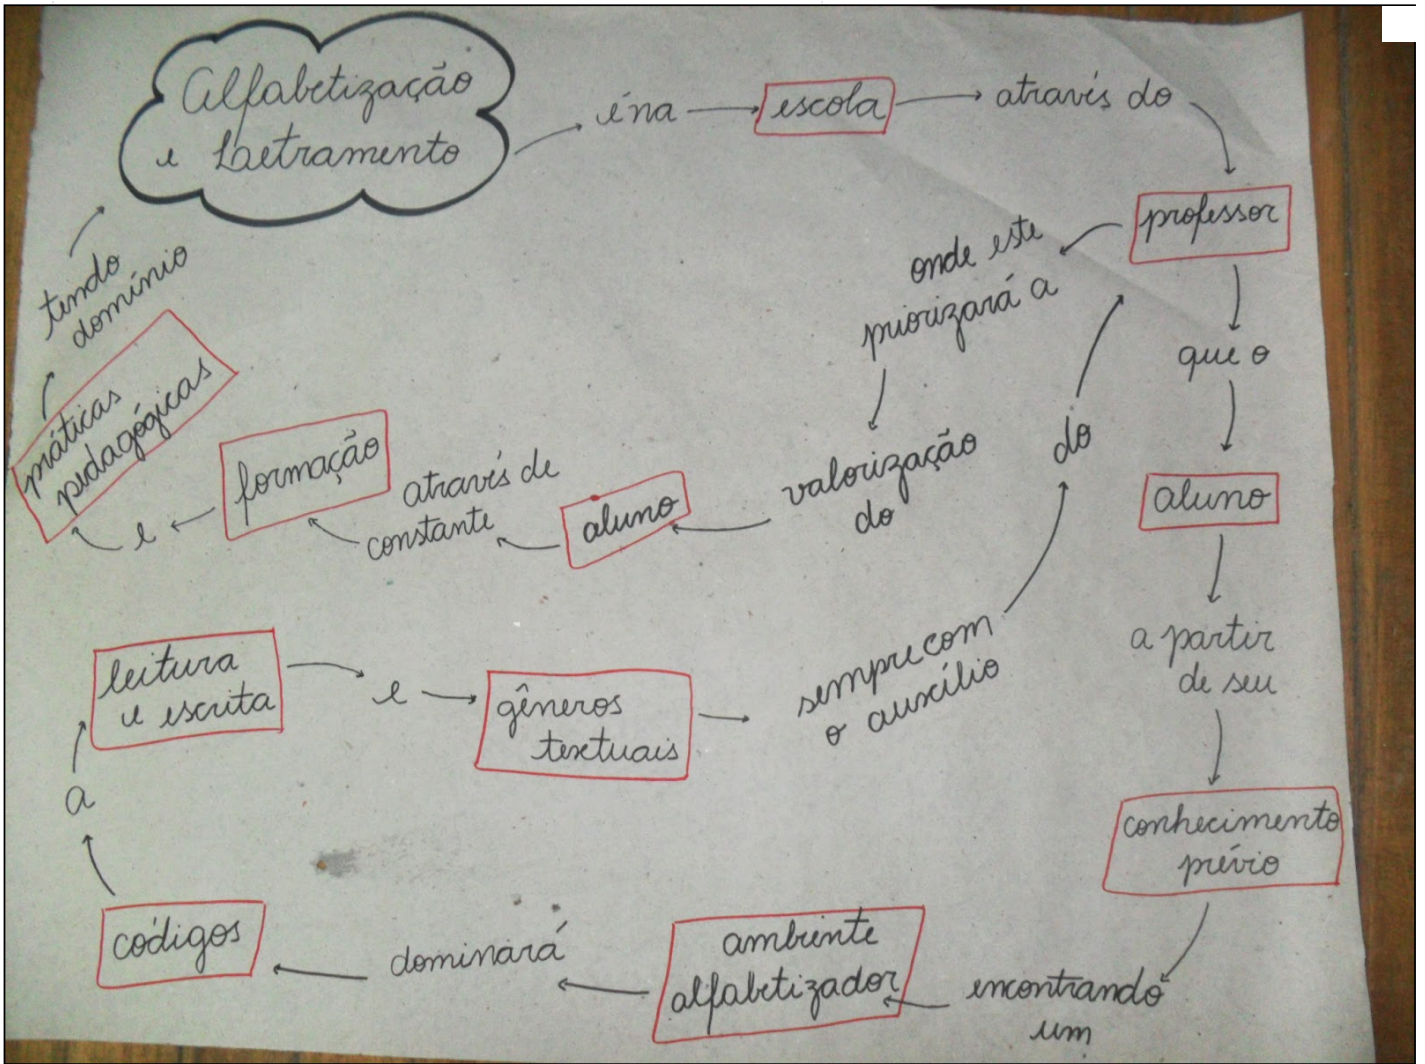 Alfabetização
e Laetramento
é na
escola
através do
professor
que o
aluno
a partir
de seu
conhecimento
prévio
encontrando
um
ambiente
alfabetizador
dominará
códigos
a
leitura
e escrita
e
gêneros
textuais
sempre com
o auxílio
do
onde este
priorizará a
valorização
do
aluno
através de
constante
formação
e
práticas
pedagógicas
tendo
domínio